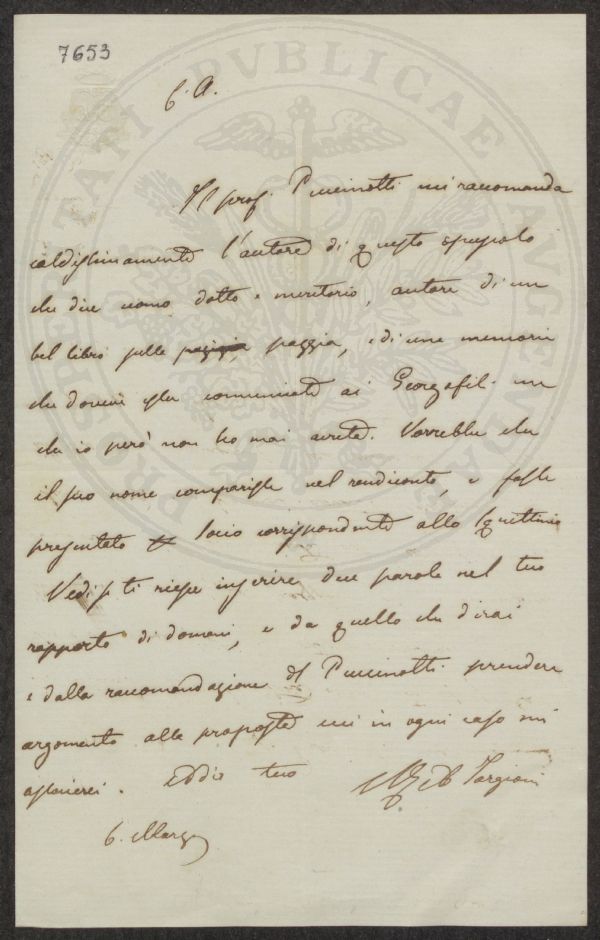 7653
C. A.
Il prof. Puccinotti mi raccomanda
caldissimamente l'autore di questo
che dice uomo dotto e meritorio, autore di un
bel libro sulla pazzia, e di una memoria
che dovea esser comunicata ai Georgofili
che io però non ho mai avuta. Vorrebbe che
il suo nome comparisse nel rendiconto, e fosse
presentato Socio corrispondente allo Squittinio
Vedi se ti riesce inserire due parole nel tuo
rapporto di domani, e da quello che dirai
e dalla raccomandazione del Puccinotti prendere
argomento alla proposta cui in ogni caso mi
assocerei. Addio tuo
Targioni
6. Marzo
PROSPERITATI PVBLICAE AVGENDAE